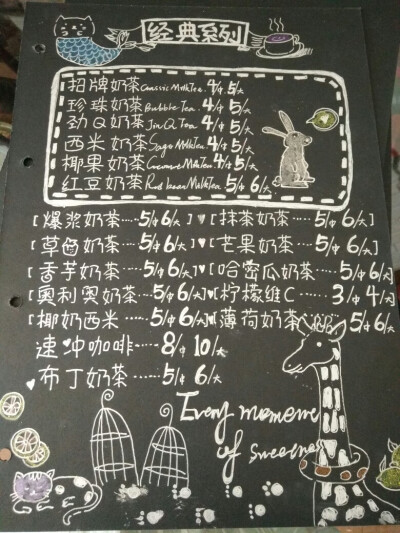 经典系列
招牌奶茶 Classic Milk Tea 4/中 5/大
珍珠奶茶 Bubble Tea 4/中 5/大
劲Q奶茶 Jin Q Tea 4/中 5/大
西米奶茶 Sago Milk Tea 4/中 5/大
椰果奶茶 Milk Tea 4/中 5/大
红豆奶茶 Red bean Milk Tea 5/中 6/大
[爆浆奶茶……5/中 6/大] ♥ [抹茶奶茶……5/中 6/大]
[草莓奶茶……5/中 6/大] ♥ [芒果奶茶……5/中 6/大]
[香芋奶茶……5/中 6/大] [哈密瓜奶茶…5/中 6/大]
[奥利奥奶茶…5/中 6/大] ♥ [柠檬维C……3/中 4/大]
[椰奶西米…5/中 6/大] ♥ 薄荷奶茶 5/中 6/大
速冲咖啡……8/中 10/大
♥ 布丁奶茶……5/中 6/大
Every momeme
of sweetness